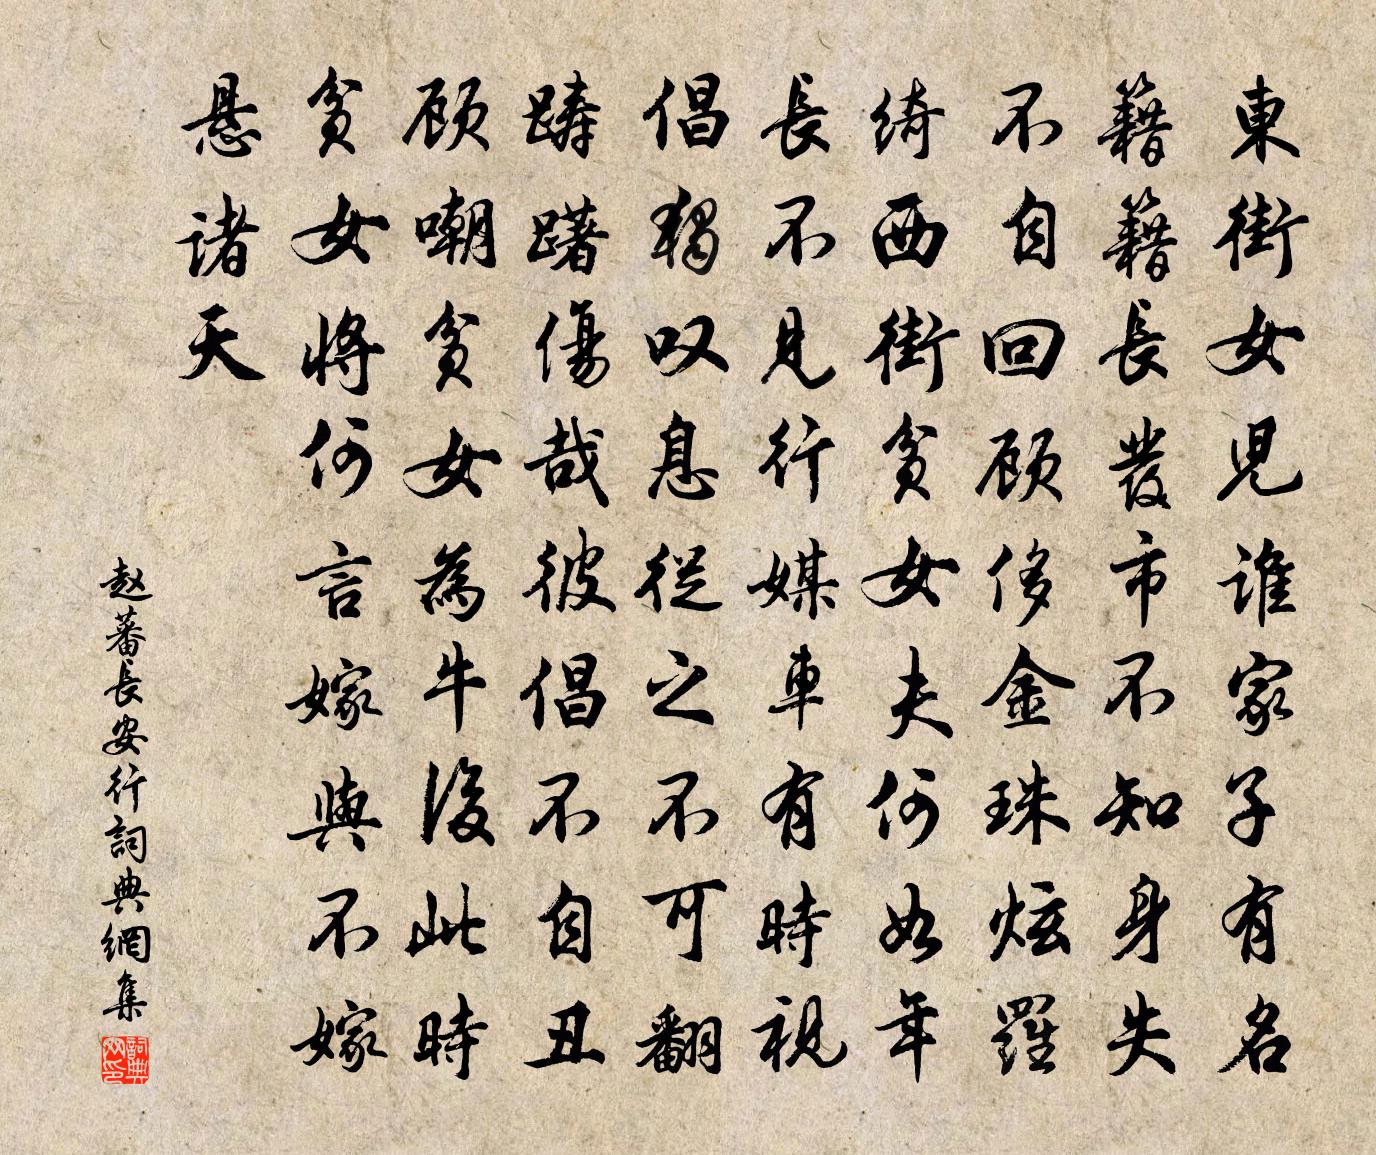 東街女児誰家子有名
籍籍長發市不知身失
不自回顾侈金珠炫羅
绮西街貧女夫何如年
長不見行媒車有時視
倡獨叹息從之不可翻
躊躇傷哉彼倡不自丑
顾嘲貧女為牛後此時
貧女將何言嫁與不嫁
悬诸天
赵蕃長安行詞典網集
詞典网印